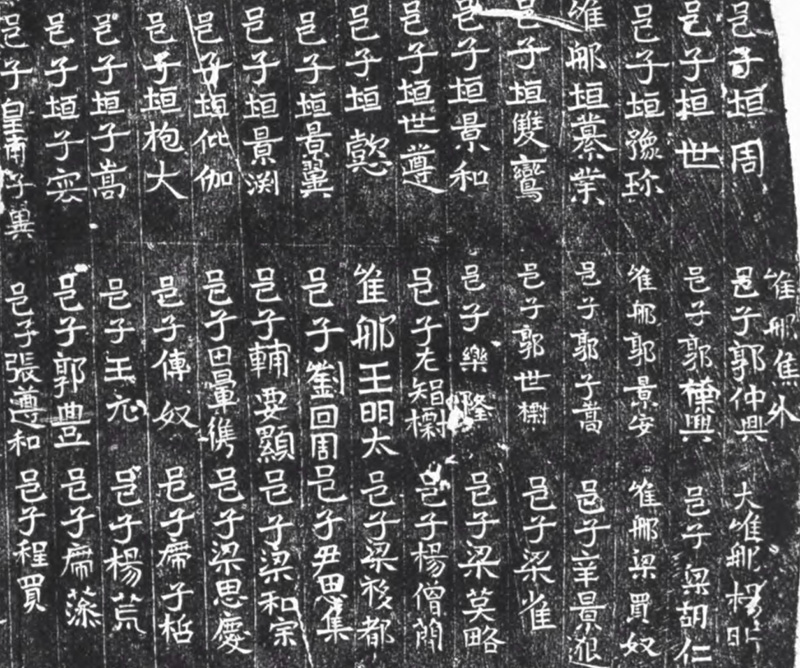 邑子垣周
邑子垣世
邑子垣豫珎
維那垣業
邑子垣雙鸞
邑子垣景和
邑子垣世遵
邑子垣懿
邑子垣景翼
邑子垣景渕
邑子垣仳伽
邑子垣枹大
邑子垣子嵩
邑子垣子雲
邑子皇甫子異
維那焦外
邑子郭仲興
邑子郭興
維那郭景安
邑子郭子嵩
邑子郭世
邑子樂隆
邑子左
維那王明太
邑子劉回周
邑子輔要顯
邑子田暈儁
邑子傅奴
邑子王元
邑子郭豊
邑子張遵和
大維那楊
邑子梁胡仁
維那梁買奴
邑子辛景
邑子梁雀
邑子梁莫略
邑子楊僧蘭
邑子梁都
邑子尹思集
邑子梁和宗
邑子梁思慶
邑子席子栝
邑子楊荒
邑子席
邑子程買